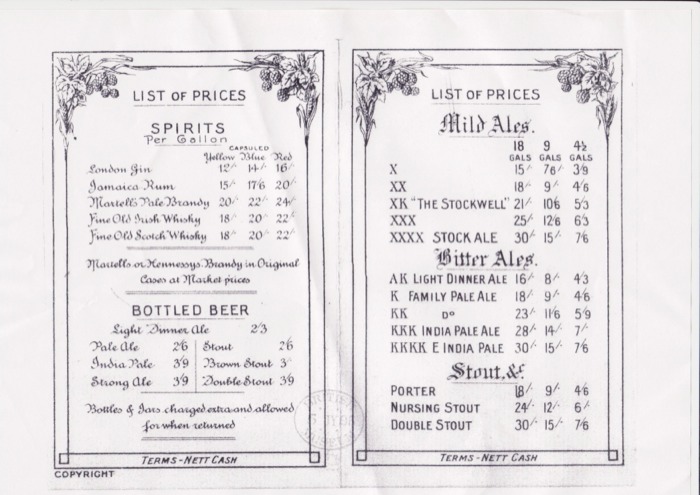 LIST OF PRICES
SPIRITS
Per Gallon
CAPSULED
Yellow Blue Red
London Gin 12/- 14/- 16/-
Jamaica Rum 15/- 17/6 20/-
Martell's Pale Brandy 20/- 22/- 24/-
Fine Old Irish Whisky 18/- 20/- 22/-
Fine Old Scotch Whisky 18/- 20/- 22/-
Martells or Hennessys Brandy in Original
Cases at Market prices
BOTTLED BEER
Light Dinner Ale 2/3
Pale Ale 2/6 Stout 2/6
India Pale 3/9 Brown Stout 3/-
Strong Ale 3/9 Double Stout 3/9
Bottles & Jars charged extra and allowed
for when returned
TERMS - NETT CASH
COPYRIGHT
LIST OF PRICES
Mild Ales.
18 9 4½
GALS GALS GALS
X 15/- 7/6/- 3/9
XX 18/- 9/- 4/6
XK "THE STOCKWELL" 21/- 10/6 5/3
XXX 25/- 12/6 6/3
XXXX STOCK ALE 30/- 15/- 7/6
Bitter Ales.
AK LIGHT DINNER ALE 16/- 8/- 4/3
K FAMILY PALE ALE 18/- 9/- 4/6
KK Dº 23/- 11/6 5/9
KKK INDIA PALE ALE 28/- 14/- 7/-
KKKK E INDIA PALE 30/- 15/- 7/6
Stout, &c.
PORTER 18/- 9/- 4/6
NURSING STOUT 24/- 12/- 6/-
DOUBLE STOUT 30/- 15/- 7/6
TERMS - NETT CASH